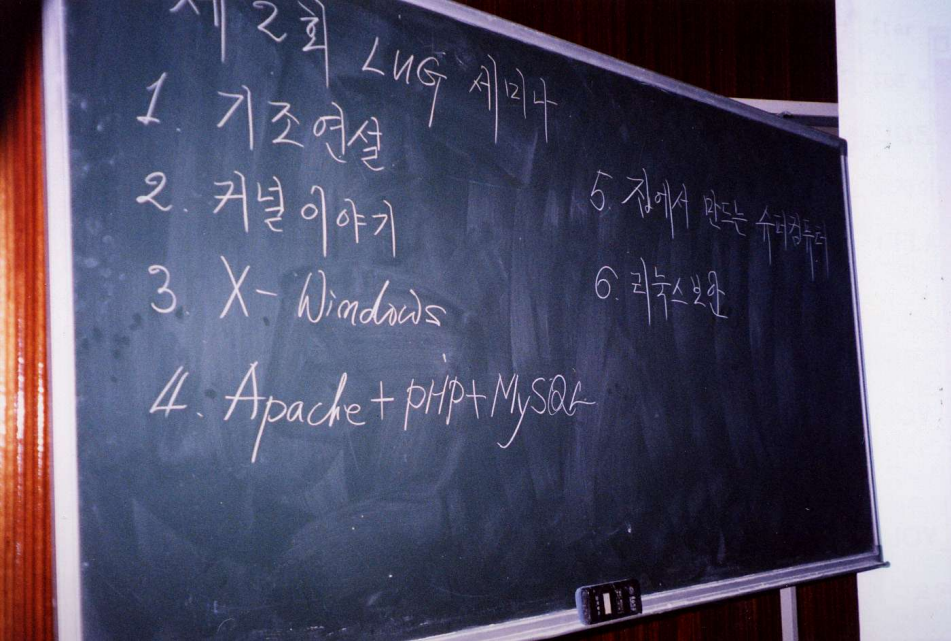 제 2회 LUG 세미나
1. 기조연설
2. 커널이야기
3. X-Windows
4. Apache+PHP+MySQL
5. 집에서 만드는 슈퍼컴퓨터
6. 리눅스보안